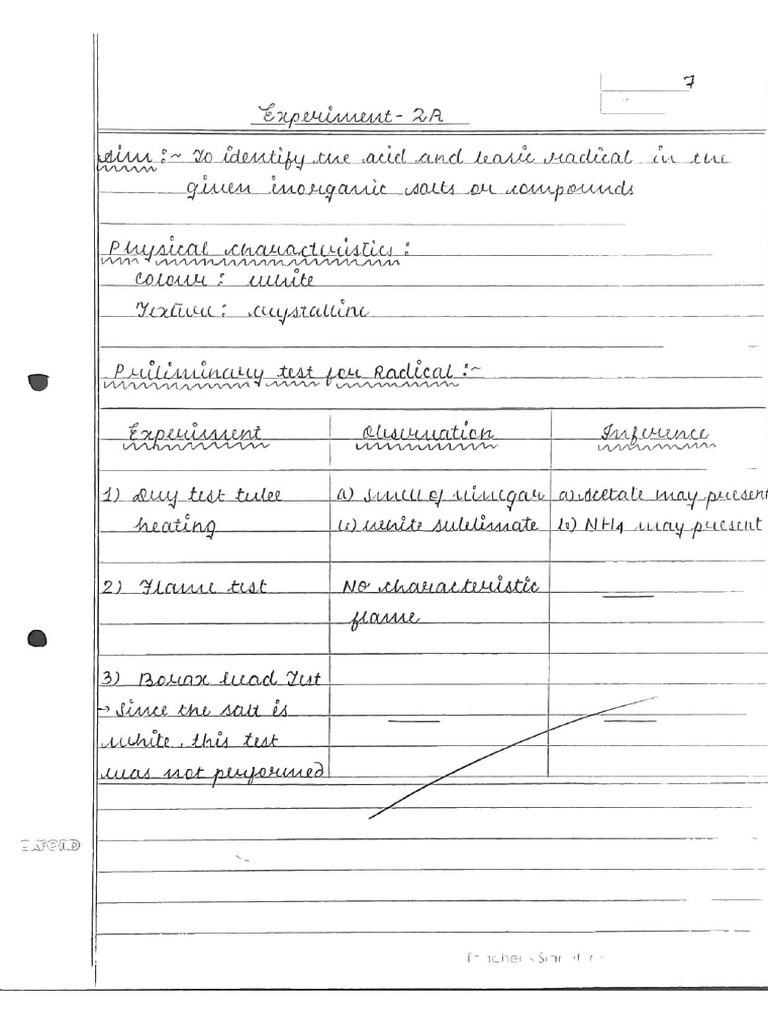 7
Experiment - 2A
Aim :~ To identify the acid and basic radical in the
given inorganic salts or compounds
Physical characteristics :
Colour : white
Texture : crystalline
Preliminary test for Radical :~
Experiment Observation Inference
1) Dry test tube a) smell of vinegar a) Acetate may present
heating b) white sublimate b) NH4 may present
2) Flame test No characteristic
flame
3) Borax bead Test
→ Since the salt is
white, this test
was not performed